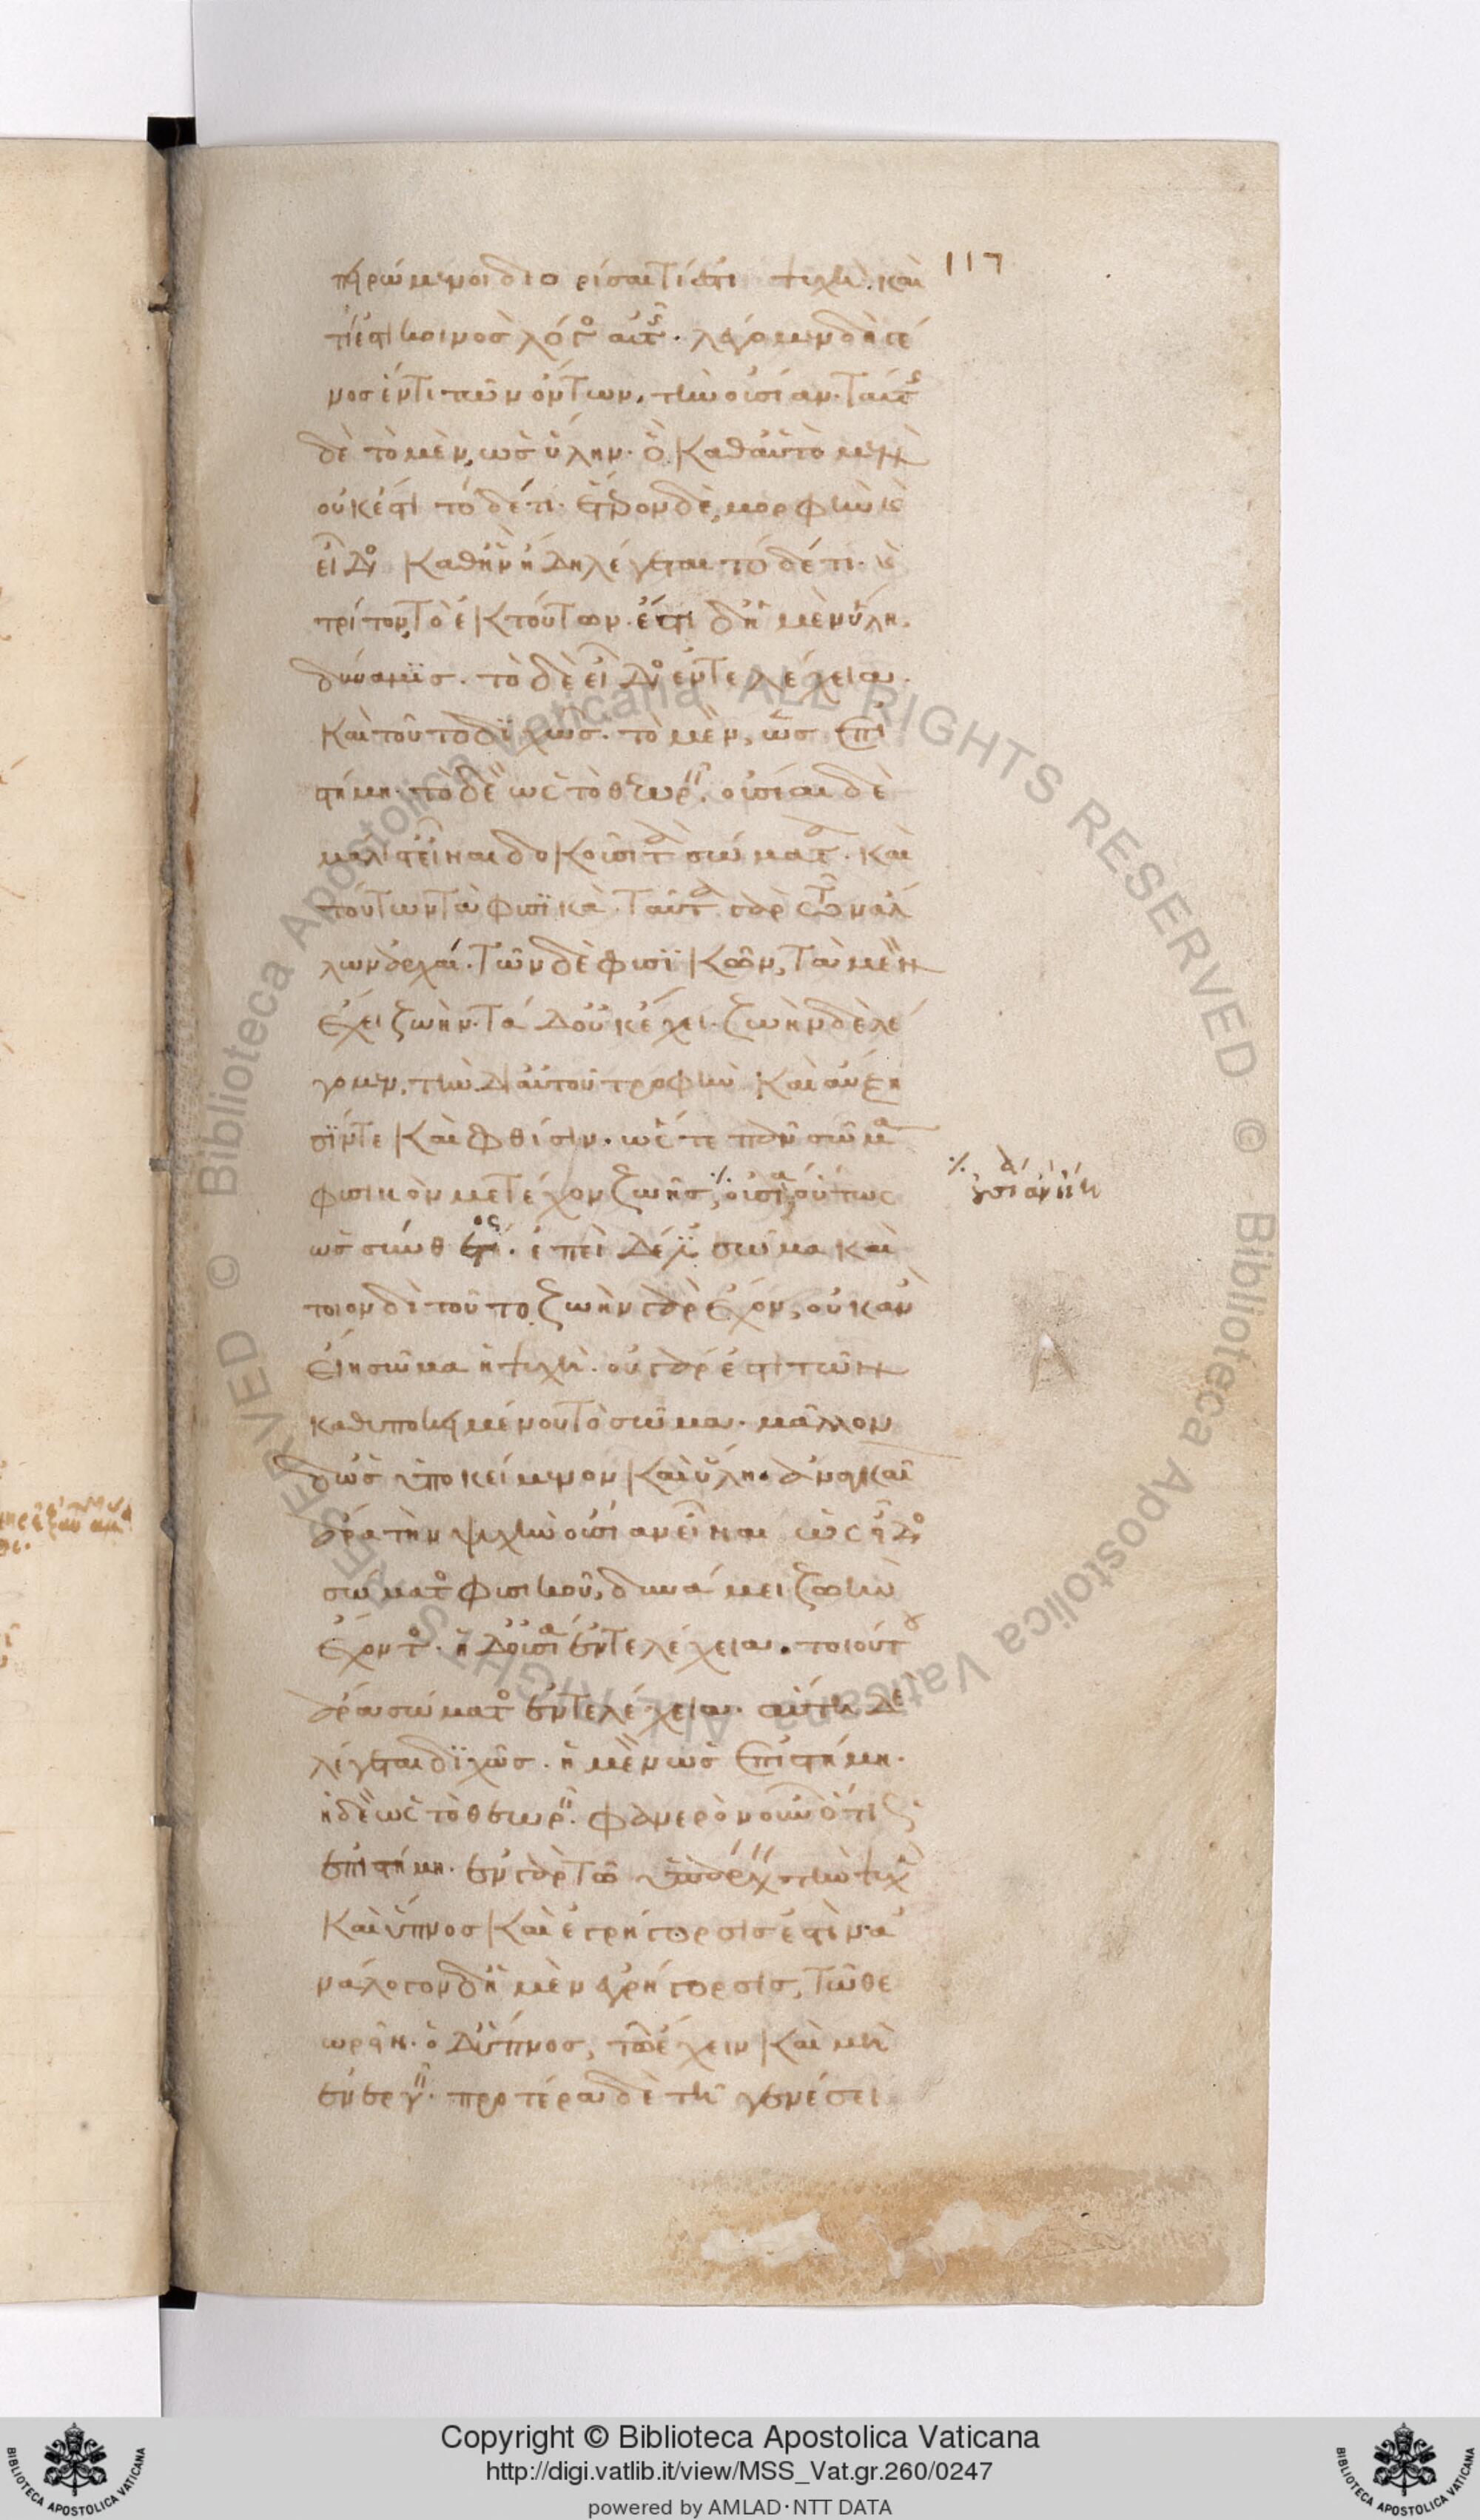 117
πειρώμενοι διορίσαι τί ἐστι ψυχὴ. καὶ
τίς ἐστι κοινοσ λόγος αὐτῆς. λέγομεν δὴ γέ
νος ἕν τι τῶν ὄντων, τὴν οὐσίαν. ταύτης
δὲ τὸ μὲν, ὡσ ὕλην. ὃ καθαὑτὸ μὲν
οὐκ ἔστι τόδέ τι. ἕτερον δὲ, μορφὴν καὶ
εἶδος καθἣν ἤδη λέγεται τόδέ τι. καὶ
τρίτον τὸ ἐκ τούτων. ἔστι δἡ μὲν ὕλη.
δύναμϊσ. τὸ δὲ εἶδος ἐντελέχεια.
καὶ τοῦτο διχῶσ. τὸ μὲν, ὡσ ἐπι
στήμη. τὸ δὲ ὡς τὸ θεωρεῖν. οὐσίαι δὲ
μάλιστ εἶναι δοκοῦσι τὰ σώματα. καὶ
τούτων τὰ φυσϊκὰ. ταῦτα γὰρ τῶν ἄλ
λων ἀρχαί. τῶν δὲ φυσϊκῶν, τὰ μὲν
ἔχει ζωὴν. τὰ δοὐκ ἔχει. ζωὴν δὲ λέ
γομεν, τὴν διαὑτοῦ τροφὴν καὶ αὔξη
σϊν τε καὶ φθίσιν. ὥστε πᾶν σῶμα
φυσικὸν μετέχον ζωῆσ, οὐσία, οὕτως
ὡσ συνθέτη. ἐπεὶ δἐϊ σῶμα καὶ
τοιονδὶ τοῦτο ζωὴν γὰρ ἔχον, οὐκ ἂν
εἴη σῶμα ἡ ψυχὴ. οὐ γὰρ ἐστι τῶν
καθυποκειμένου τὸ σῶμα. μᾶλλον
δὡσ ὑποκείμενον καὶ ὕλη. ἀναγκαῖ
ἄρα τὴν ψυχὴν οὐσίαν εἶναι ὡς εἶδος
σώματος φυσικοῦ, δυνάμει ζωὴν
ἔχοντος. ἡ δοὐσία ἐντελέχεια. τοιούτου
ἄρα σώματος ἐντελέχεια. αὕτη δὲ
λέγεται διχῶσ. ἡ μὲν ὡσ ἐπιστήμη.
ἡ δὲ ὡς τὸ θεωρεῖν. φανερὸν οὖν ὅτι ὡς
ἐπιστήμη. ἐν γὰρ τῷ ὑπάρχειν τὴν ψυχὴν
καὶ ὕπνοσ καὶ ἐγρήγορσίσ ἐστιν. ἀ
νάλογον δἡ μὲν ἐγρήγορσισ, τῷ θε
ωρεῖν. ὁ δὕπνοσ, τῷ ἔχειν καὶ μὴ
ἐνεργεῖν. προτέρα δὲ τῆ γενέσει
Copyright © Biblioteca Apostolica Vaticana
http://digi.vatlib.it/view/MSS_Vat.gr.260/0247
powered by AMLAD·NTT DATA